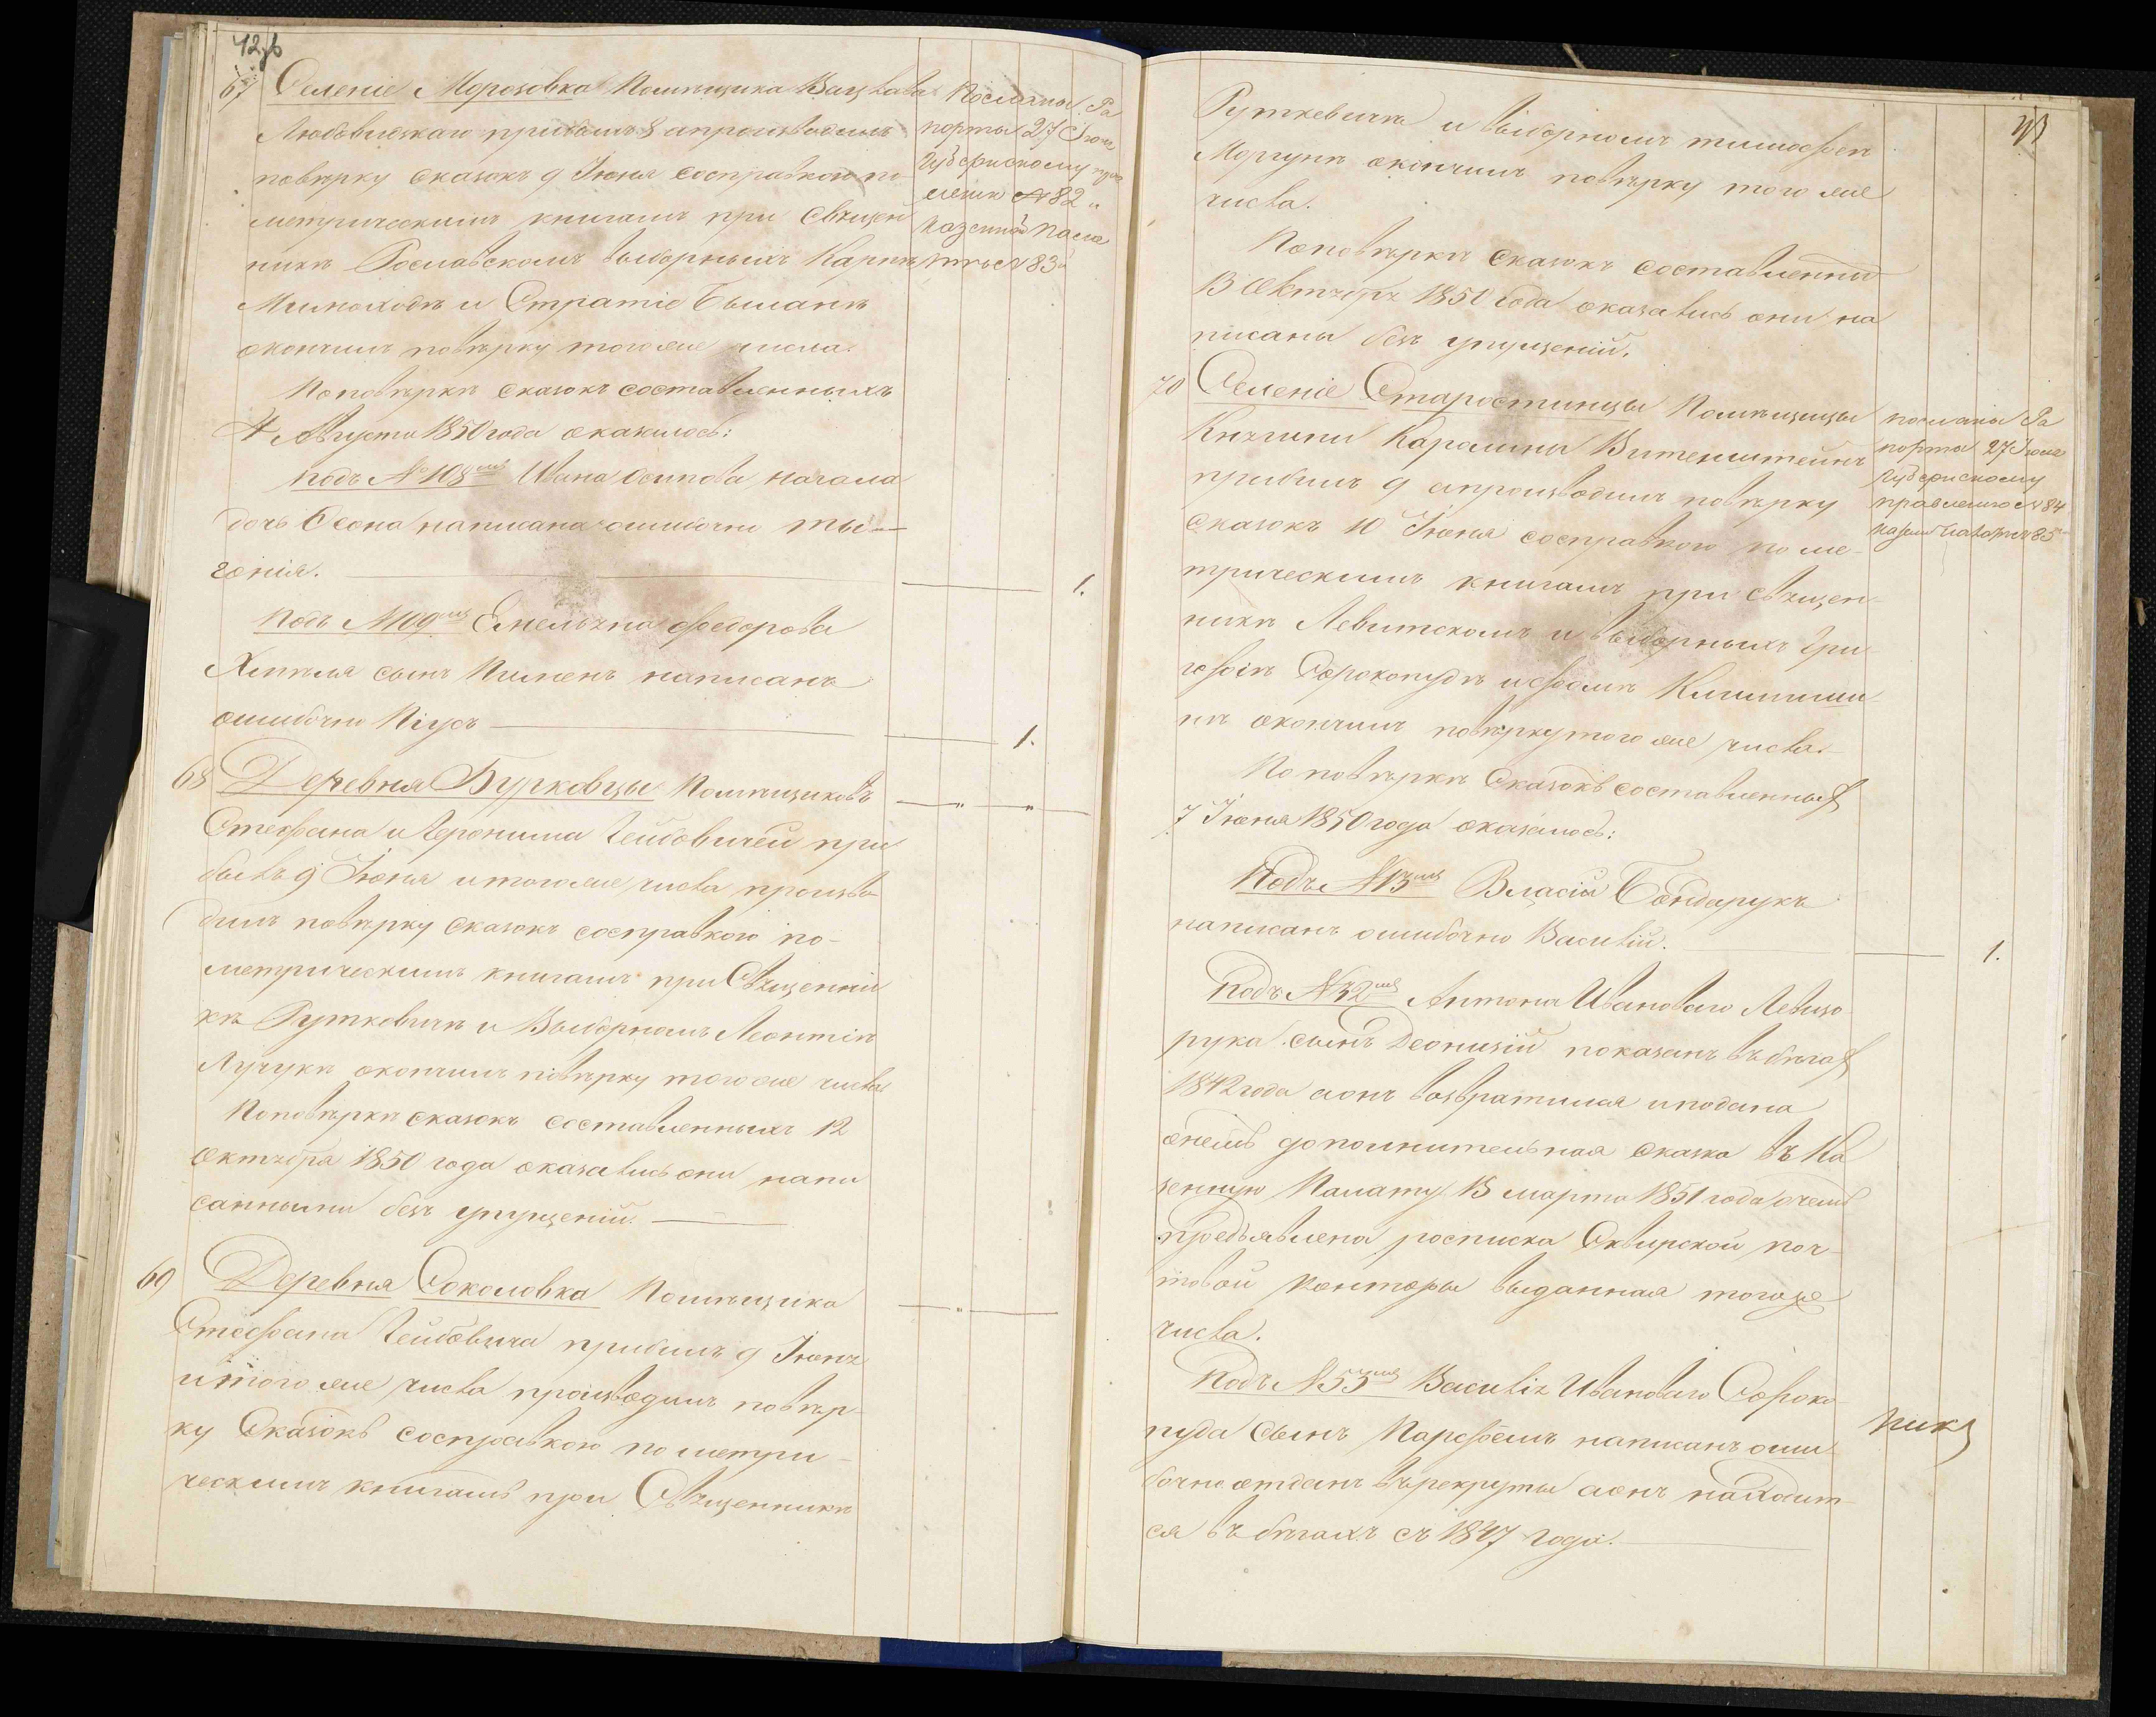 42об
67 Селеніе Морозовка Помѣщика Вацлава
Любовидзкаго прибылъ 8 апроизводилъ
повѣрку сказокъ 9 Іюня сосправкою по
метрическимъ книгамъ при Священ
никѣ Рославскомъ выборныхъ Карпѣ
и Стратіе
окончилъ повѣрку того же числа.
Посланы Ра
порты 27 Іюня
Губернскому прав
ленію № 82 и
Казенной Пала
тѣ № 83
Поповѣркѣ сказокъ составленныхъ
4 Августа 1850 года оказалось:
подъ № 108мъ Ивана Осипова
дочь Ѳеона написана ошибочно
гонія. 1.
Подъ № 109мъ Емельяна Федорова
Хмѣля сынъ Пименъ написанъ
ошибочно Піусъ 1.
68 Деревня Бурковцы Помѣщиковъ
Стефана и Іеронима при
былъ 9 Іюня итого же числа произво
дилъ повѣрку сказокъ сосправкою по-
метрическимъ книгамъ при Священни
кѣ Руткевичѣ и Выборномъ Леонтіѣ
окончилъ повѣрку того же числа
Поповѣркѣ сказокъ составленныхъ 12
Октября 1850 года оказались они напи
санными безъ упущеній.
69 Деревня Соколовка Помѣщика
Стефана прибылъ 9 Іюня
итого же числа производилъ повѣр-
ку Сказокъ сосправкою по метри-
ческимъ книгамъ при Священникѣ
43
Руткевичѣ и выборномъ тимофеѣ
Моргунѣ окончилъ повѣрку того же
числа.
Поповѣркѣ Сказокъ составленны
13 Октября 1850 года оказались они на
писаны безъ упущеній.
70 Селеніе Старостинцы Помѣщицы
Княгини Каролины Витгенштейнъ
прибылъ 9 апроизводилъ повѣрку
Сказокъ 10 Іюня сосправкою по ме-
трическимъ книгамъ при Священ-
никѣ Левитскомъ и выборныхъ Гри-
горіѣ Сорокопудѣ
нѣ окончилъ повѣрку того же числа.
посланы Ра
порты 27 Іюня
Губернскому
правленію № 84
казен палатѣ № 85
По повѣркѣ Сказокъ составленныхъ
7 Іюня 1850 года оказалось:
Подъ № 13мъ Власій Бондарукъ
написанъ ошибочно Василій. 1.
Подъ № 32мъ Антона Ивановаго
рука сынъ Деонизій показанъ въ бѣгахъ
1842 года аонъ возвратился иподана
онемъ дополнительная сказка въ Ка
зенную Палату 13 марта 1851 года очемъ
предъявлена росписка Сквирской поч-
товой Конторы выданная тогоже
числа.
Подъ № 55мъ Василія Ивановаго Сороко
пуда сынъ Парфемъ написанъ оши
бочно отданъ въ рекруты аонъ находит-
ся въ бѣгахъ съ 1847 года.